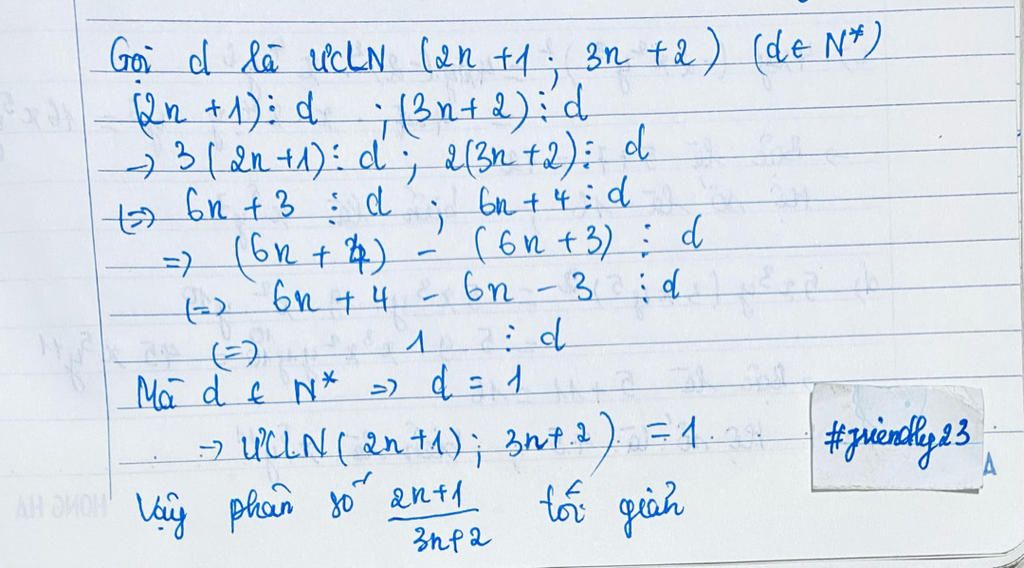 Gọi d là ƯCLN (2n+1; 3n+2) (d ∈ N*)
(2n+1)⋮d ; (3n+2)⋮d
→ 3(2n+1)⋮d ; 2(3n+2)⋮d
(=) 6n+3 ⋮ d ; 6n+4⋮d
=> (6n+4) - (6n+3) ⋮ d
(=> 6n+4-6n-3 ⋮d
(=) 1 ⋮ d
Mà d ∈ N* => d = 1
→ ƯCLN(2n+1); 3n+2) = 1.
Vậy phân số \frac{2n+1}{3n+2} tối giản
#friendly23
A
HONG HA